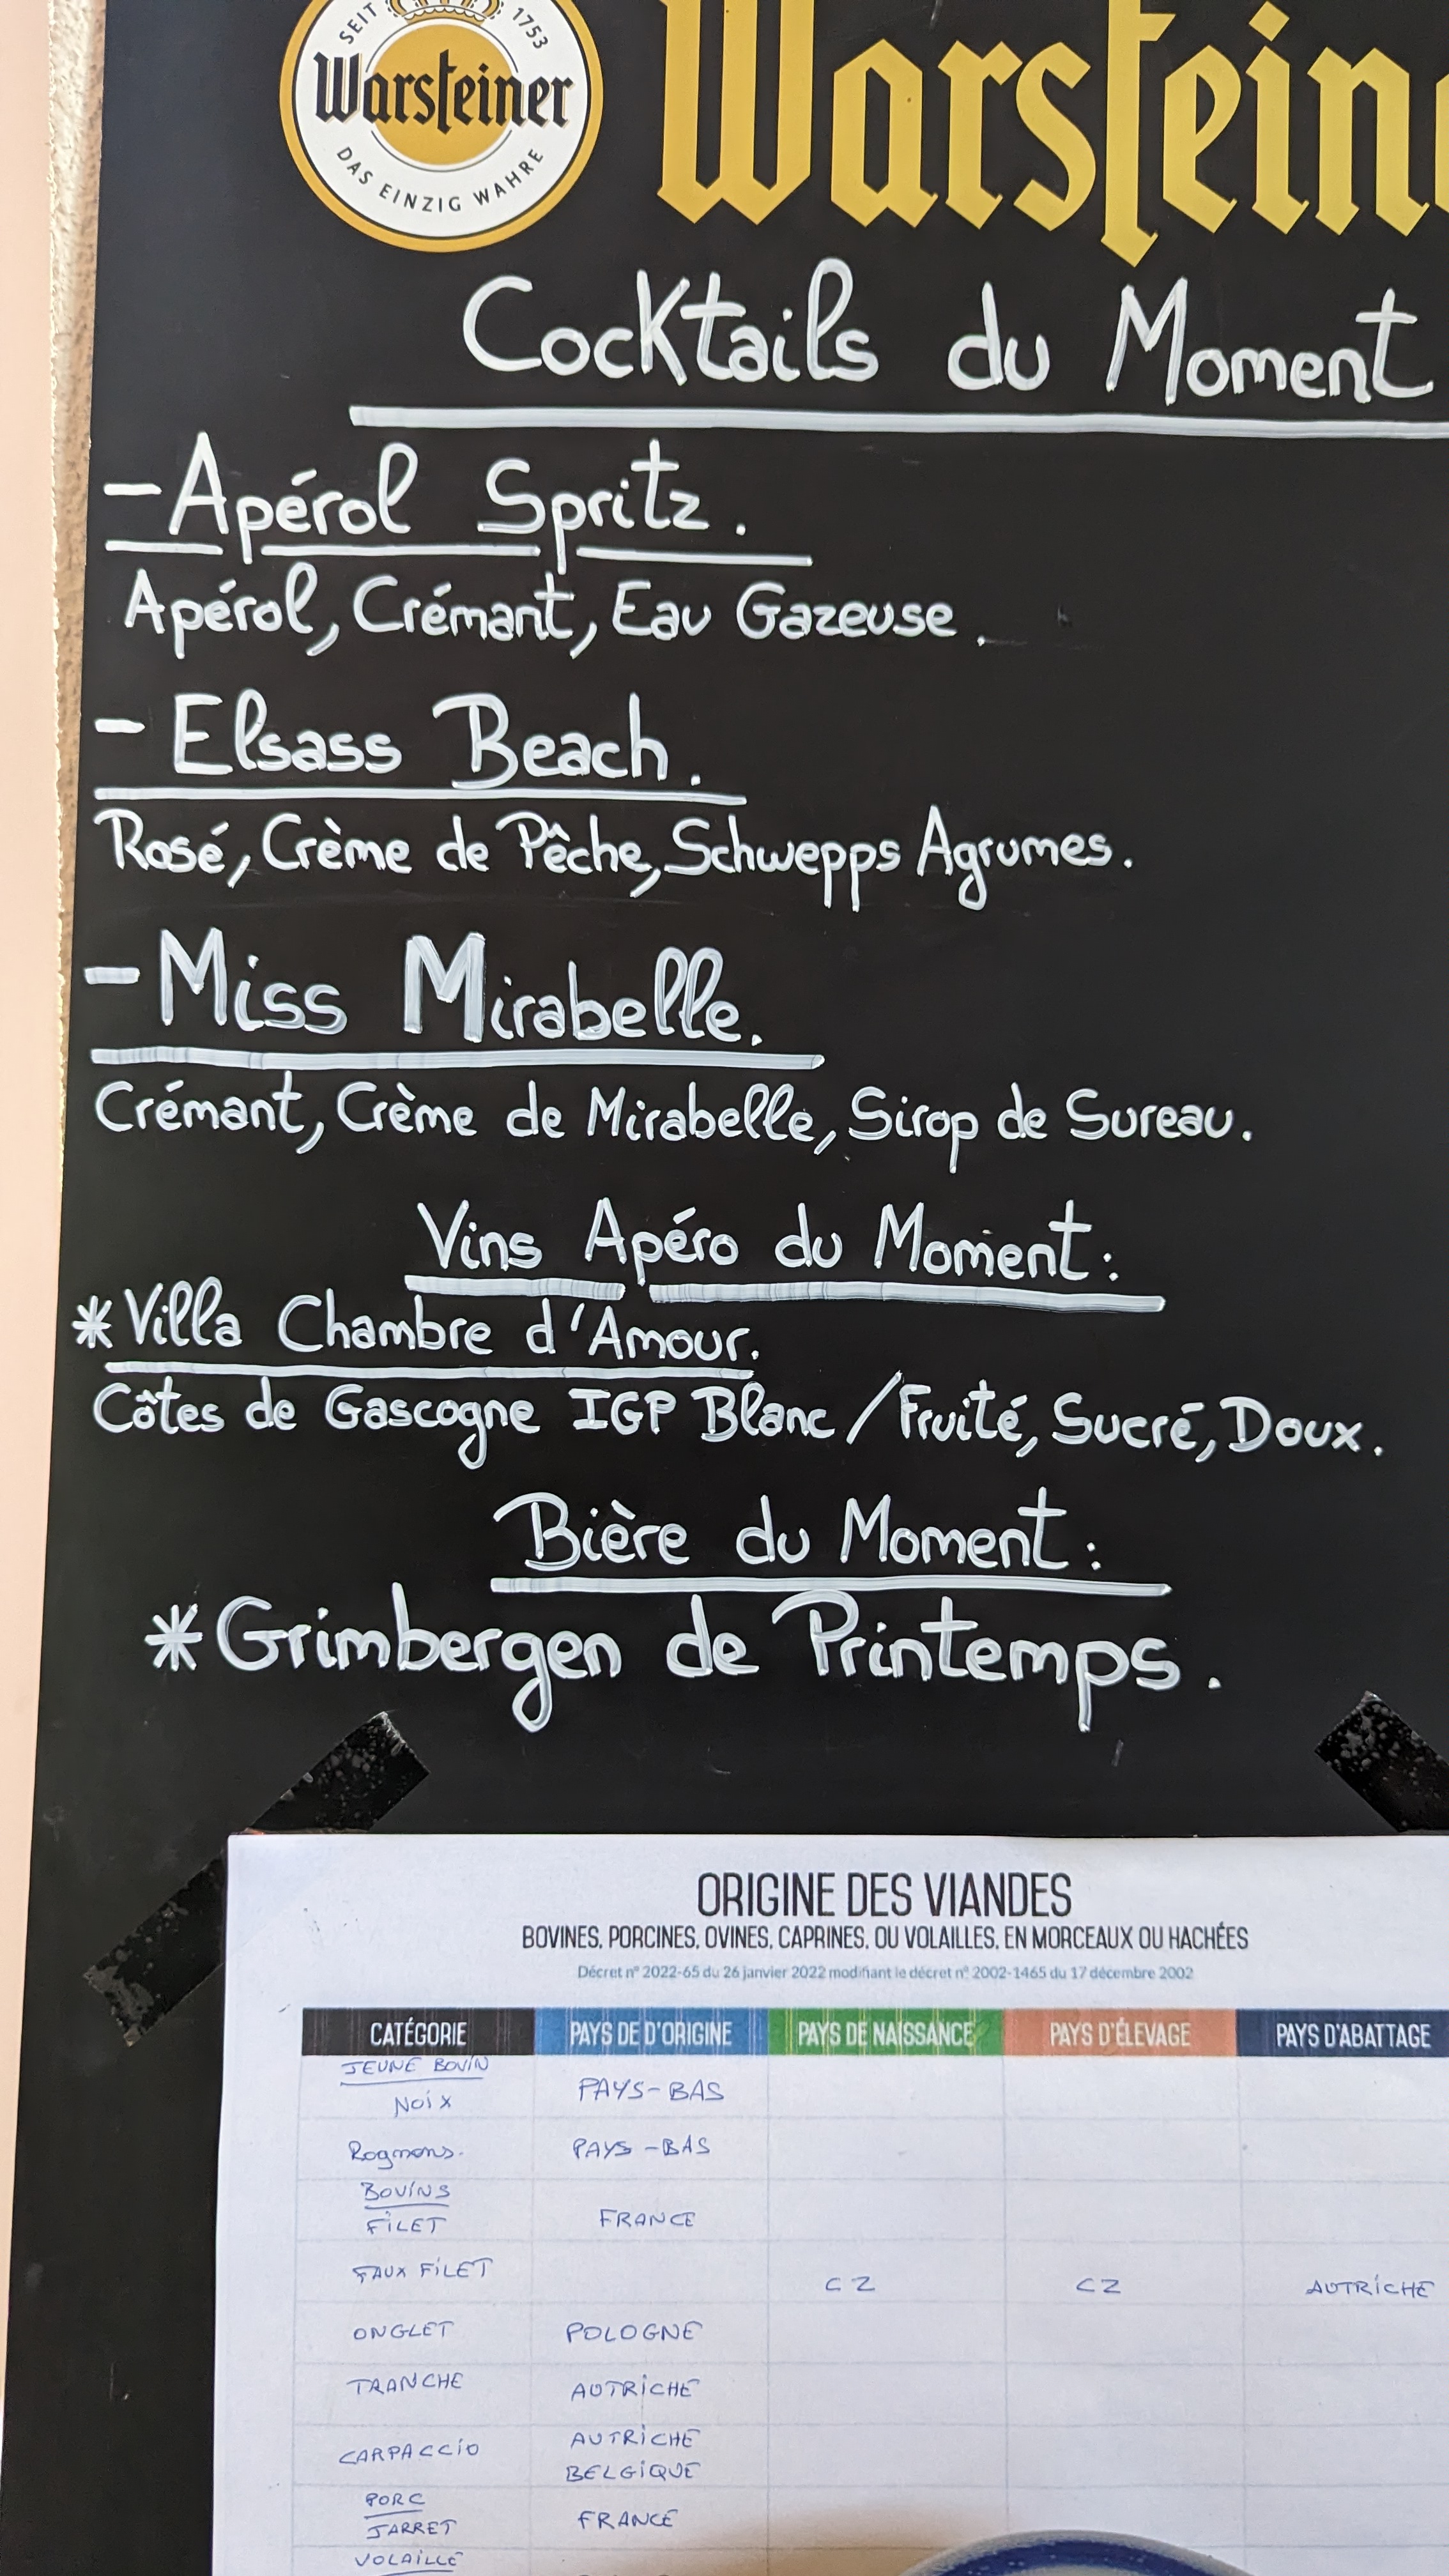 SEIT 1753
Warsteiner
DAS EINZIG WAHRE
Warstein
Cocktails du Moment
- Apérol Spritz.
Apérol, Crémant, Eau Gazeuse.
- Elsass Beach.
Rosé, Crème de Pêche, Schwepps Agrumes.
- Miss Mirabelle.
Crémant, Crème de Mirabelle, Sirop de Sureau.
Vins Apéro du Moment:
* Villa Chambre d'Amour.
Côtes de Gascogne IGP Blanc / Fruité, Sucré, Doux.
Bière du Moment:
* Grimbergen de Printemps.
ORIGINE DES VIANDES
BOVINES, PORCINES, OVINES, CAPRINES, OU VOLAILLES, EN MORCEAUX OU HACHÉES
Décret n° 2022-65 du 26 janvier 2022 modifiant le décret n° 2002-1465 du 17 décembre 2002
CATÉGORIE PAYS DE D'ORIGINE PAYS DE NAISSANCE PAYS D'ÉLEVAGE PAYS D'ABATTAGE
JEUNE BOVIN
NOIX PAYS-BAS
Rognons. PAYS-BAS
BOVINS
FILET FRANCE
FAUX FILET CZ CZ AUTRICHE
ONGLET POLOGNE
TRANCHE AUTRICHE
CARPACCIO AUTRICHE
BELGIQUE
PORC
JARRET FRANCE
VOLAILLE